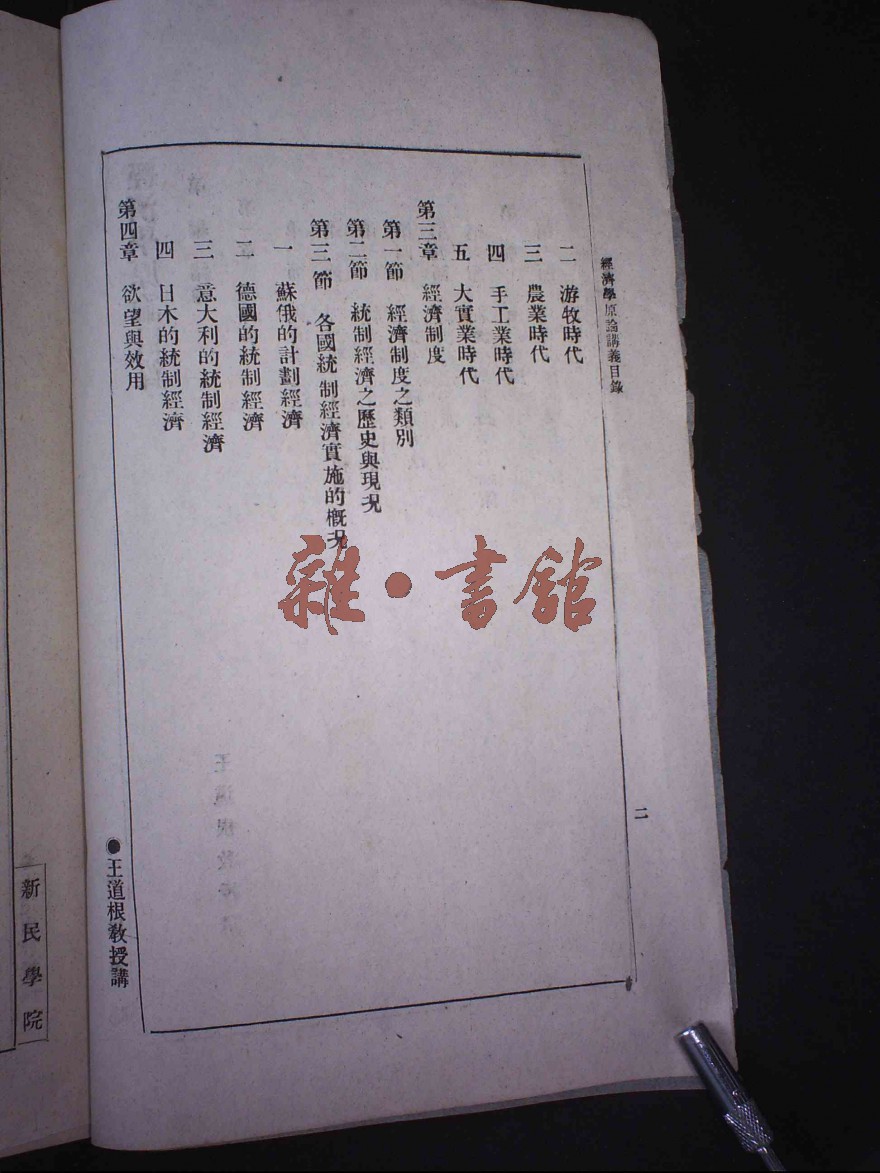 經濟學原論講義目錄
二
二 游牧時代
三 農業時代
四 手工業時代
五 大實業時代
第三章 經濟制度
第一節 經濟制度之類別
第二節 統制經濟之歷史與現況
第三節 各國統制經濟實施的概況
一 蘇俄的計劃經濟
二 德國的統制經濟
三 意大利的統制經濟
四 日本的統制經濟
第四章 欲望與效用
●王道根教授講
新民學院
雜·書館